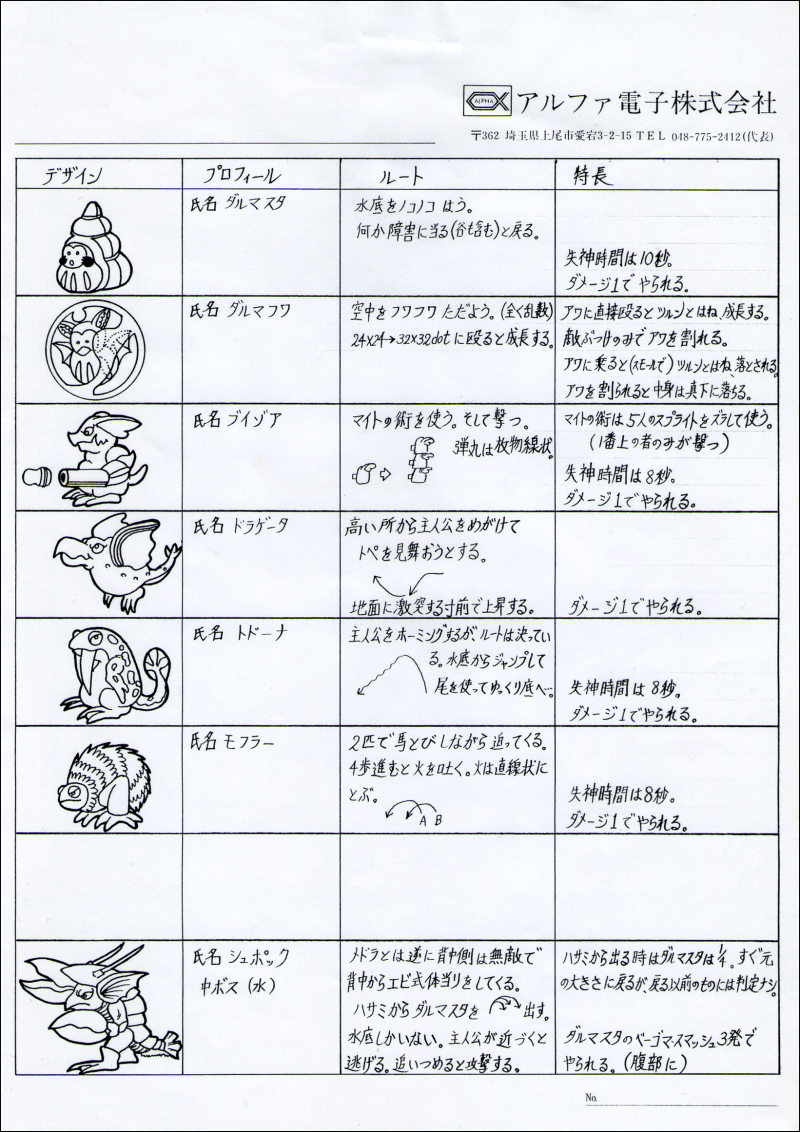 ALPHA アルファ電子株式会社
〒362 埼玉県上尾市愛宕3-2-15 TEL 048-775-2412(代表)
デザイン プロフィール ルート 特長
氏名 ダルマスタ
水底をノコノコ はう。
何か障害に当る(谷も含む)と戻る。
失神時間は10秒。
ダメージ1でやられる。
氏名 ダルマフワ
空中をフワフワ ただよう。(全く乱数)
24×24→32×32dotに殴ると成長する。
アワに直接殴ると ツルンとはね、成長する。
敵ぶつけのみでアワを割れる。
アワに乗ると(スモールで)ツルンとはね、落とされる。
アワを割られると中身は真下に落ちる。
氏名 ブイゾア
マイトの術を使う。そして撃つ。
弾丸は放物線状。
マイトの術は5人のスプライトをズラして使う。
(1番上の者のみが撃つ)
失神時間は8秒。
ダメージ1でやられる。
氏名 ドラゲータ
高い所から主人公をめがけて
トペを見舞おうとする。
地面に激突する寸前で上昇する。
ダメージ1でやられる。
氏名 トドーナ
主人公をホーミングするが、ルートは決ってい
る。水底からジャンプして
尾を使ってゆっくり底へ…。
失神時間は8秒。
ダメージ1でやられる。
氏名 モフラー
2匹で馬とびしながら迫ってくる。
4歩進むと火を吐く。火は直線状に
とぶ。
A B
失神時間は8秒。
ダメージ1でやられる。
氏名 シュポック
中ボス(水)
メドラとは逆に背中側は無敵で
背中からエビ式体当りをしてくる。
ハサミからダルマスタを 出す。
水底しかいない。主人公が近づくと
逃げる。追いつめると攻撃する。
ハサミから出る時はダルマスタは1/4。すぐ元
の大きさに戻るが、戻る以前のものには判定ナシ。
ダルマスタのベーゴマ・スマッシュ3発で
やられる。(腹部に)
No.